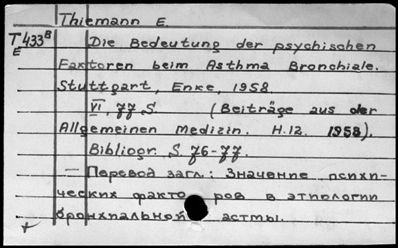 Thiemann E.
T433ᴮ Die Bedeutung der psychischen
E
Faktoren beim Asthma Bronchiale.
Stuttgart, Enke, 1958.
VI, 77 S. (Beiträge aus der
Allgemeinen Medizin. H.12. 1958).
Bibliogr. S. 76-77.
— Перевод загл.: Значение психи-
ческих факторов в этиологии
бронхиальной астмы.